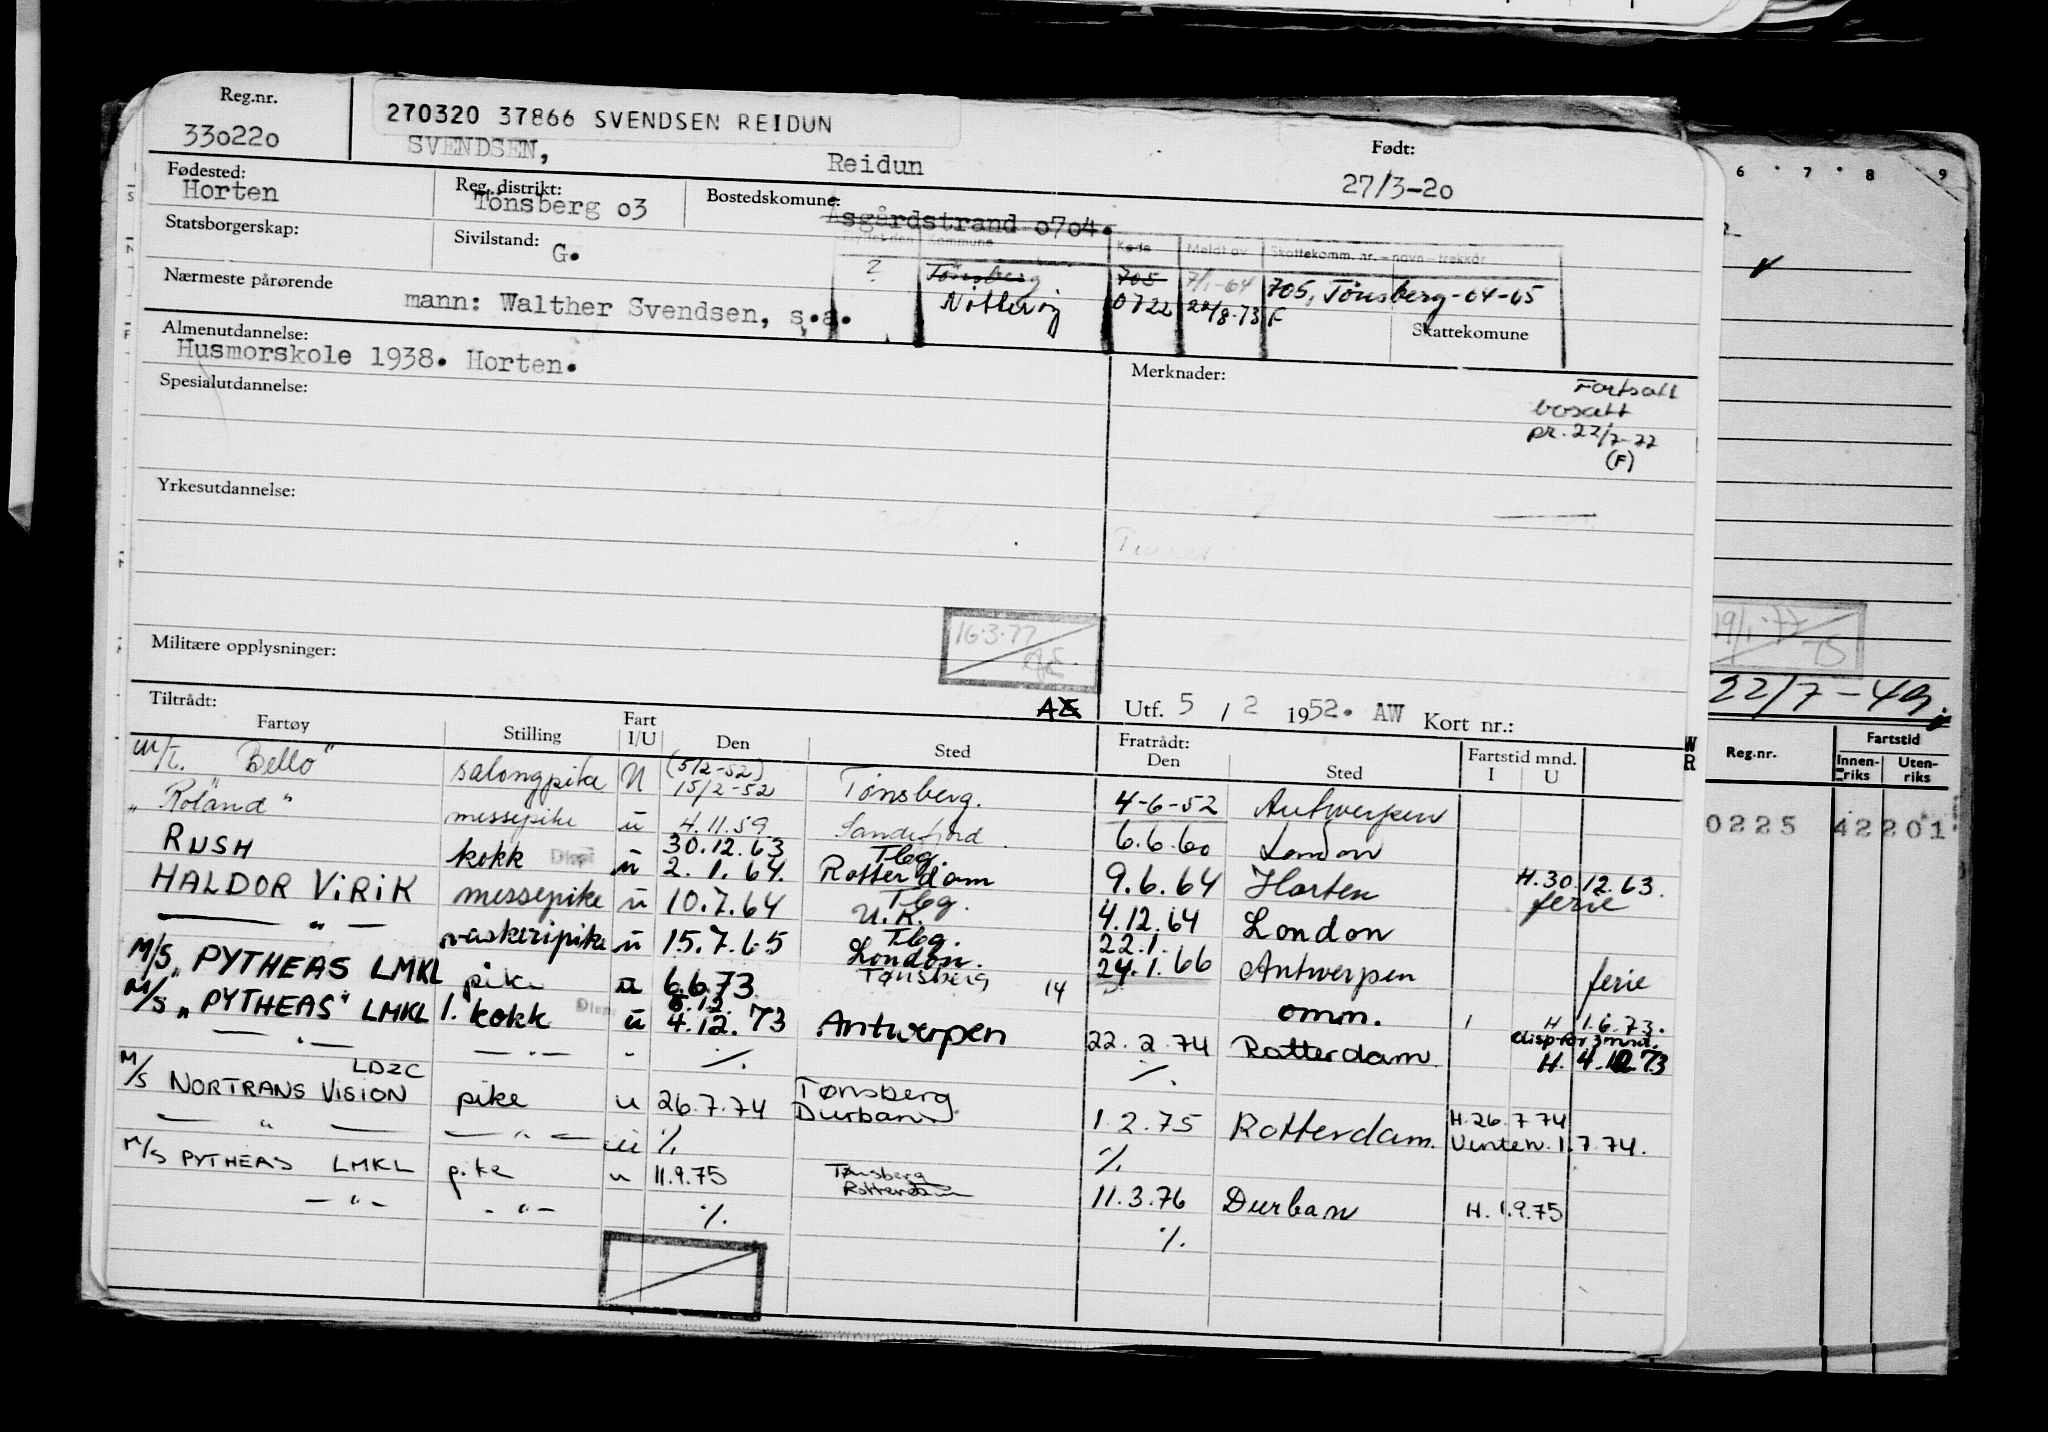 Reg.nr.
330220
270320 37866 SVENDSEN REIDUN
SVENDSEN, Reidun
Født:
27/3-20
Fødested:
Horten
Reg. distrikt:
Tønsberg 03
Bostedskomune:
Åsgårdstrand 0704.
Statsborgerskap:
Sivilstand:
G.
Kommune Kode Meldt av Skattekomm. nr. - navn - trekkår
? Tønsberg 705 7/1-64 705, Tønsberg-64-65
Nøtterøy 0722 22/8-73 F
Skattekomune
Nærmeste pårørende
mann: Walther Svendsen, s.a.
Almenutdannelse:
Husmorskole 1938. Horten.
Merknader:
Fortsatt
bosatt
pr. 22/7-77
(F)
Spesialutdannelse:
Yrkesutdannelse:
Militære opplysninger:
16.3.77
Tiltrådt:
Utf. 5 / 2 1952. AW Kort nr.:
Fartøy Stilling Fart I/U Den Sted Fratrådt: Den Sted Fartstid mnd. I U
M/T. "Bello" salongpike U (5/2-52) 15/2-52 Tønsberg. 4-6-52 Antwerpen
" Roland " messepike u 4.11.59 Sandefjord. 6.6.60 London
RUSH kokk u 30.12.63 2.1.64. Tbg. Rotterdam 9.6.64 Horten H.30.12.63.
HALDOR VIRIK messepike u 10.7.64 Tbg. U.K. 4.12.64 London ferie
— " — vaskeripike u 15.7.65 Tbg. London. 22.1. 24.1.66 Antwerpen ferie
M/S PYTHEAS LMKL pike u 6.6.73 Tønsberg 14 omm. H 1.6.73.
M/S "PYTHEAS" LMKL 1. kokk u 4.12.73 Antwerpen 22.2.74 Rotterdam disp for 3 mnd. H. 4.12.73
— " — — " — - ./. ./.
M/S NORTRANS VISION LDZC pike u 26.7.74 Tønsberg Durban 1.2.75 Rotterdam. H.26.7.74
— " — — " — u ./. ./. Ventew. 1.7.74.
M/S PYTHEAS LMKL pike u 11.9.75 Tønsberg Rotterdam 11.3.76 Durban H. 1.9.75
— " — - " - ./. ./.
6 7 8 9
19/1-77
75
22/7-49.
W
R
Reg.nr.
Fartstid
Innenriks Utenriks
0225 42201